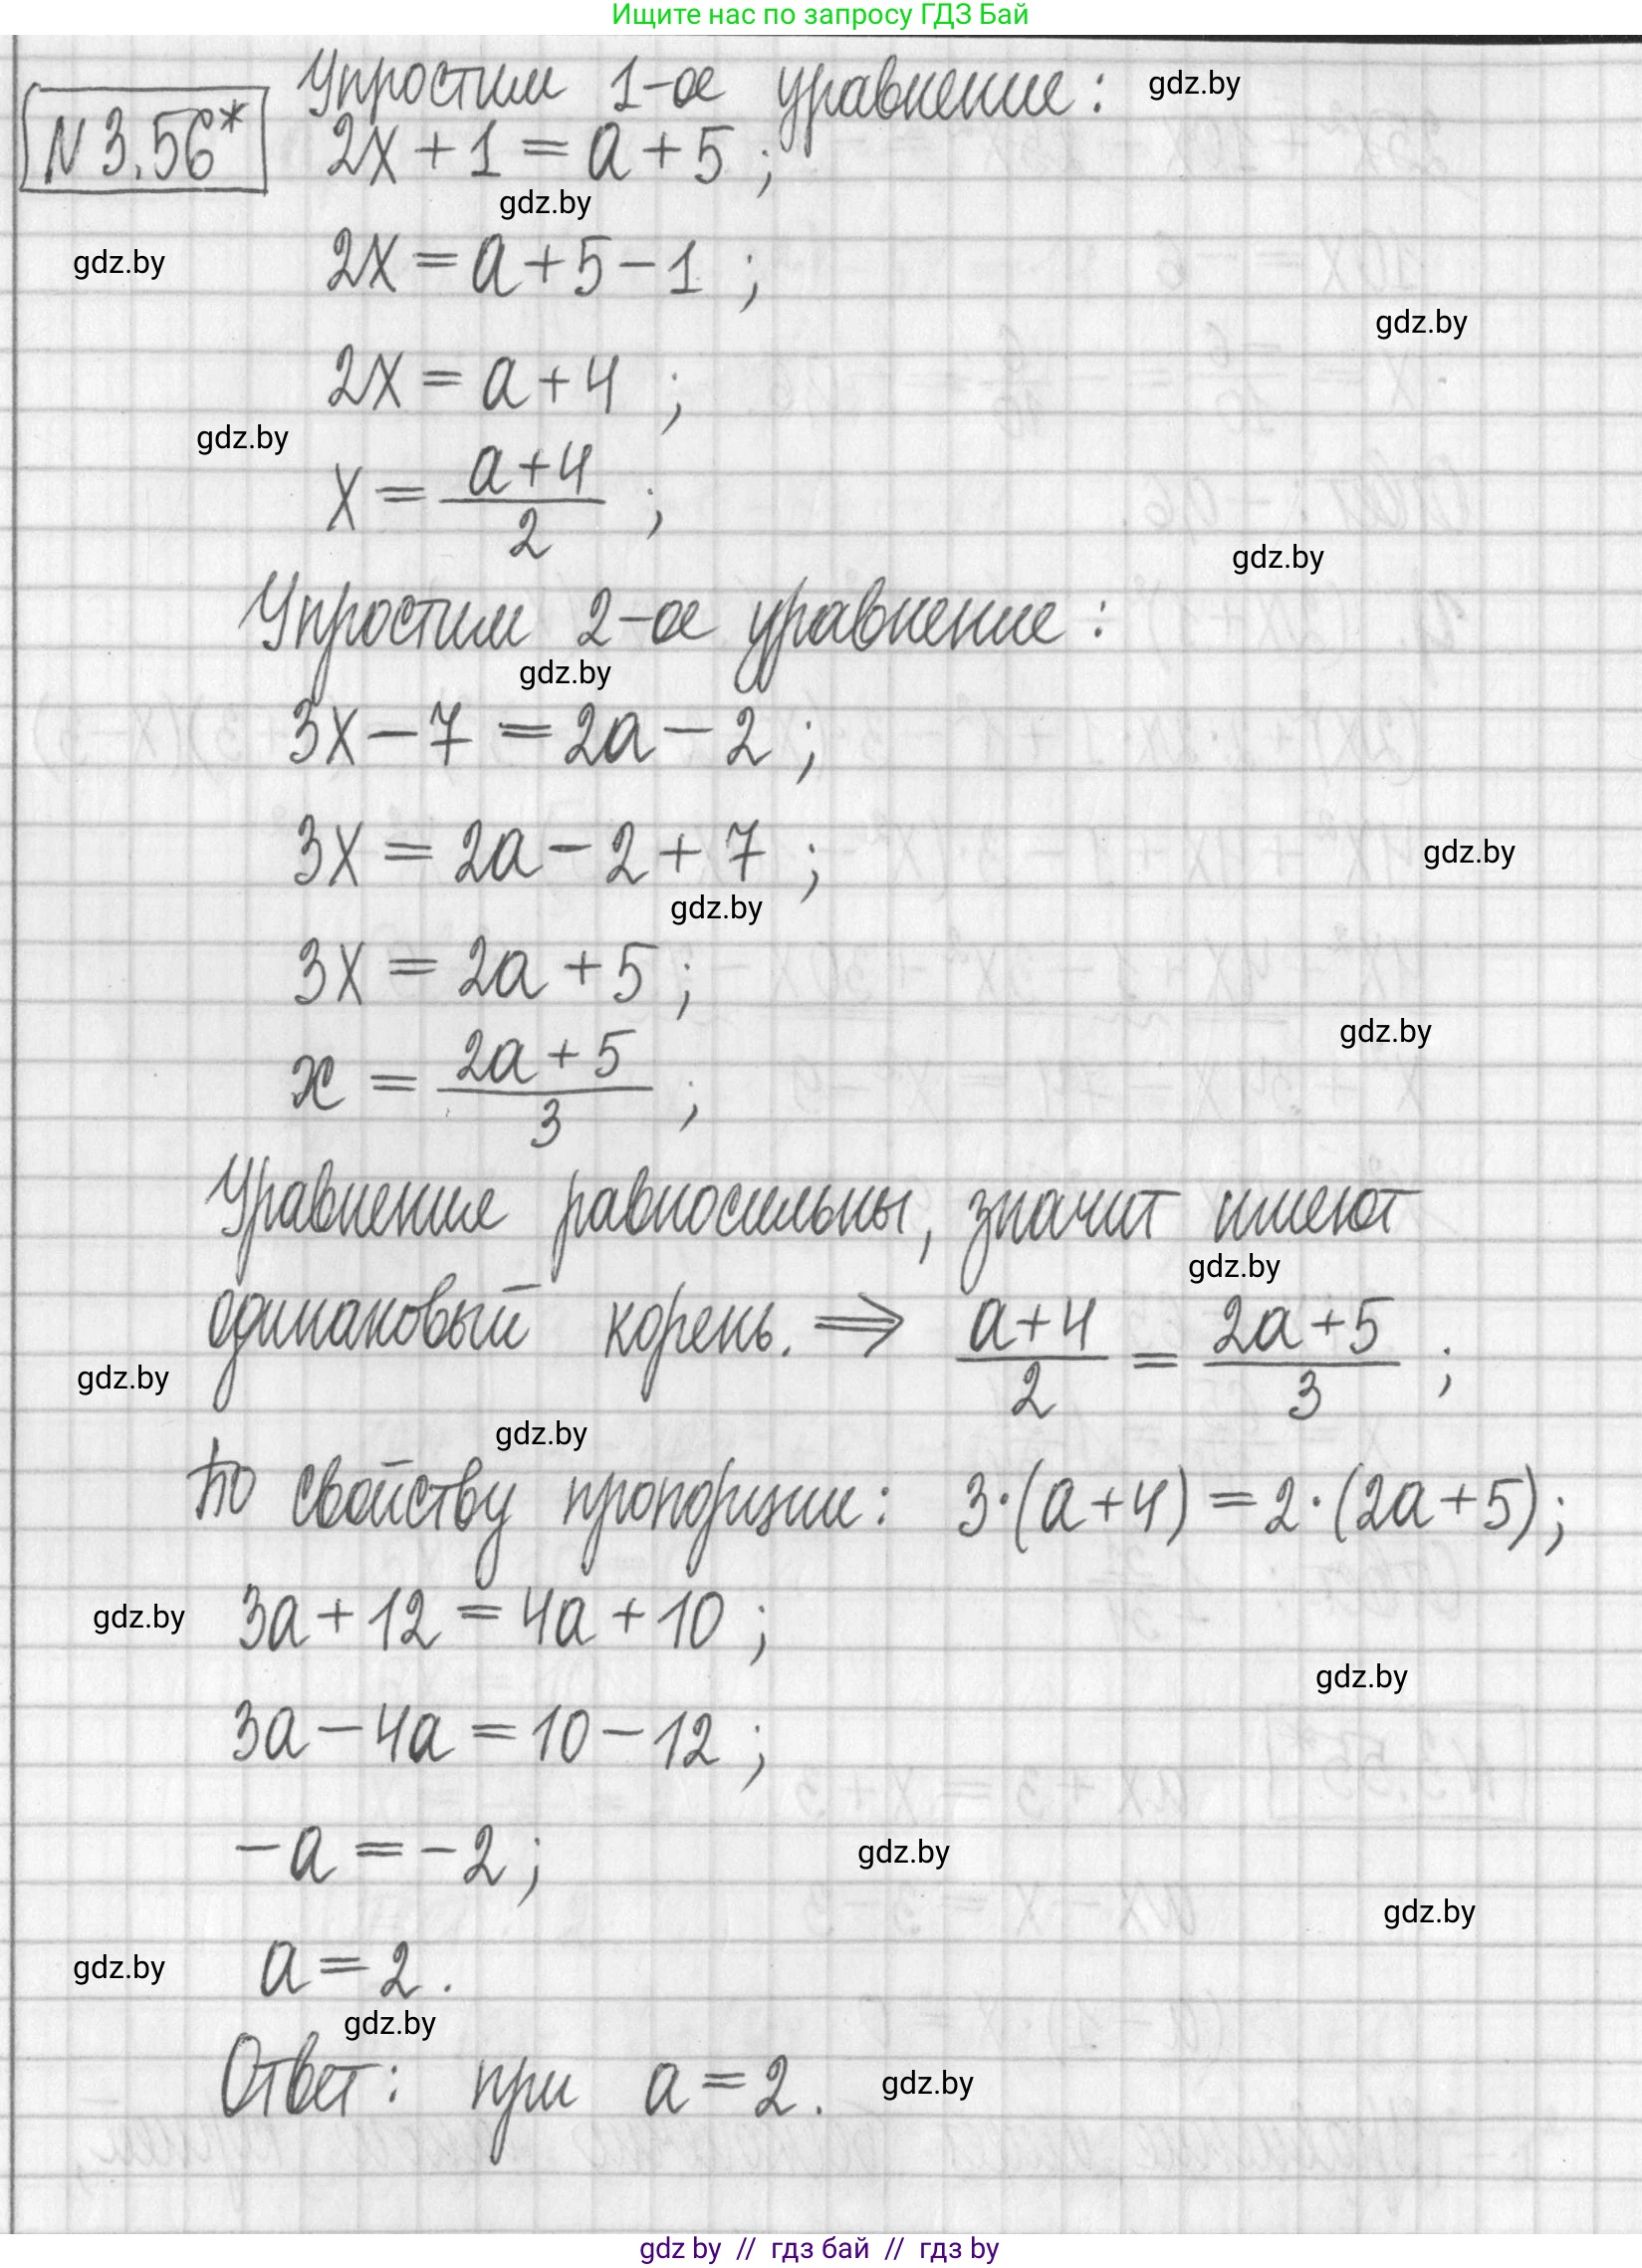 Ищите нас по запросу ГДЗ Бай
Упростим 1-ое уравнение: gdz.by
N 3.56* 2x + 1 = a + 5 ;
gdz.by
gdz.by 2x = a + 5 - 1 ;
gdz.by
2x = a + 4 ;
gdz.by
x = (a+4)/2 ;
gdz.by
Упростим 2-ое уравнение :
gdz.by
3x - 7 = 2a - 2 ;
3x = 2a - 2 + 7 ; gdz.by
gdz.by
3x = 2a + 5 ;
gdz.by
x = (2a+5)/3 ;
Уравнения равносильны, значит имеют
gdz.by
одинаковый корень. ⇒ (a+4)/2 = (2a+5)/3 ;
gdz.by
gdz.by
по свойству пропорции: 3·(a+4) = 2·(2a+5);
gdz.by 3a + 12 = 4a + 10 ;
gdz.by
3a - 4a = 10 - 12 ;
-a = -2 ; gdz.by
gdz.by
gdz.by a = 2 .
gdz.by
Ответ: при a = 2 . gdz.by
gdz by // гдз бай // гдз by